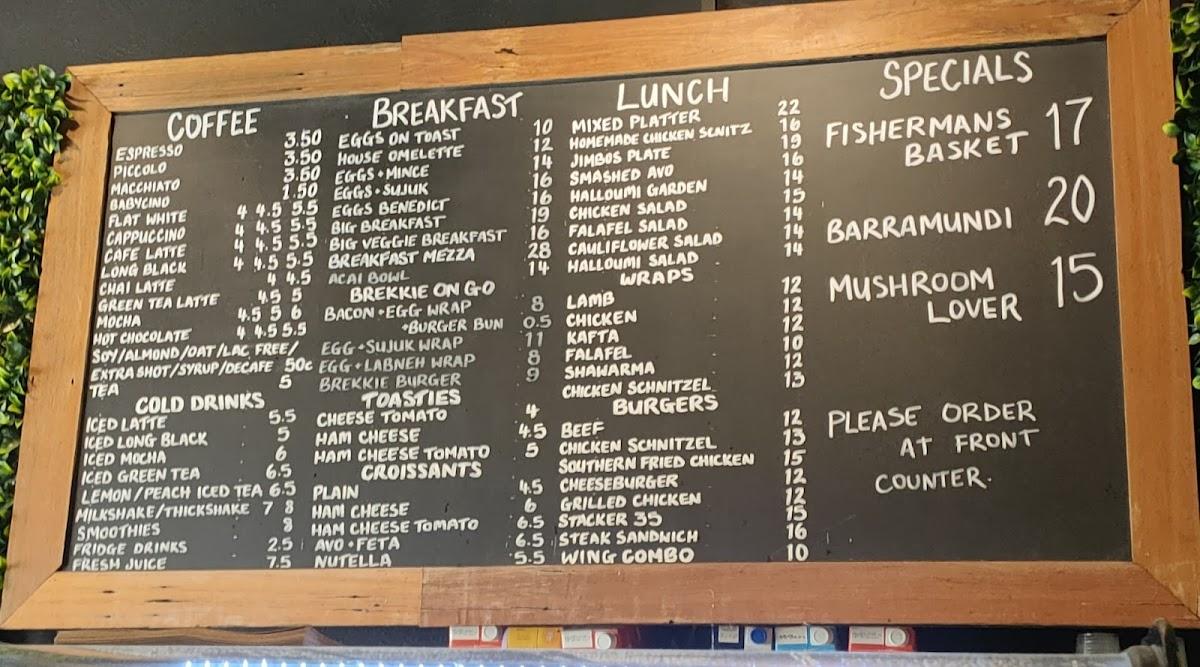 COFFEE
ESPRESSO 3.50
PICCOLO 3.50
MACCHIATO 3.50
BABYCINO 1.50
FLAT WHITE 4 4.5 5.5
CAPPUCCINO 4 4.5 5.5
CAFE LATTE 4 4.5 5.5
LONG BLACK 4 4.5 5.5
CHAI LATTE 4 4.5
GREEN TEA LATTE 4.5 5
MOCHA 4.5 5 6
HOT CHOCOLATE 4 4.5 5.5
SOY/ALMOND/OAT/LAC FREE/
EXTRA SHOT/SYRUP/DECAFE 50c
TEA 5
COLD DRINKS
ICED LATTE 5.5
ICED LONG BLACK 5
ICED MOCHA 6
ICED GREEN TEA 6.5
LEMON/PEACH ICED TEA 6.5
MILKSHAKE/THICKSHAKE 7 8
SMOOTHIES 8
FRIDGE DRINKS 2.5
FRESH JUICE 7.5
BREAKFAST
EGGS ON TOAST 10
HOUSE OMELETTE 12
EGGS + MINCE 14
EGGS + SUJUK 16
EGGS BENEDICT 16
BIG BREAKFAST 19
BIG VEGGIE BREAKFAST 16
BREAKFAST MEZZA 28
ACAI BOWL 14
BREKKIE ON GO
BACON + EGG WRAP 8
+BURGER BUN 0.5
EGG + SUJUK WRAP 11
EGG + LABNEH WRAP 8
BREKKIE BURGER 9
TOASTIES
CHEESE TOMATO 4
HAM CHEESE 4.5
HAM CHEESE TOMATO 5
CROISSANTS
PLAIN 4.5
HAM CHEESE 6
HAM CHEESE TOMATO 6.5
AVO + FETA 6.5
NUTELLA 5.5
LUNCH
MIXED PLATTER 22
HOMEMADE CHICKEN SCNITZ 16
JIMBOS PLATE 19
SMASHED AVO 16
HALLOUMI GARDEN 14
CHICKEN SALAD 15
FALAFEL SALAD 14
CAULIFLOWER SALAD 14
HALLOUMI SALAD
WRAPS
LAMB 12
CHICKEN 12
KAFTA 12
FALAFEL 10
SHAWARMA 12
CHICKEN SCHNITZEL 13
BURGERS
BEEF 12
CHICKEN SCHNITZEL 13
SOUTHERN FRIED CHICKEN 15
CHEESEBURGER 12
GRILLED CHICKEN 12
STACKER 35 15
STEAK SANDWICH 16
WING COMBO 10
SPECIALS
FISHERMANS 17
BASKET
BARRAMUNDI 20
MUSHROOM 15
LOVER
PLEASE ORDER
AT FRONT
COUNTER.